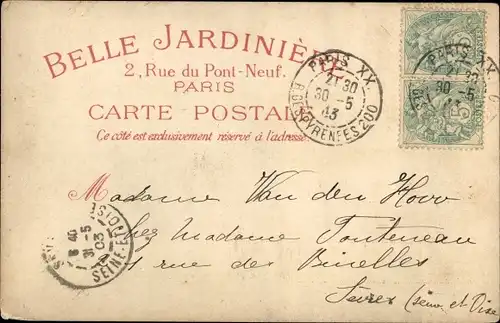 BELLE JARDINIÈRE
2, Rue du Pont-Neuf.
PARIS
CARTE POSTALE
Ce côté est exclusivement réservé à l'adresse.
PARIS XX
21 30
30-5
03
R. DES PYRENEES 200
PARIS XX
30
30-5
03
6 40
31-5
03
SEINE-ET-OISE
Madame Van den Hove
chez Madame Fonteneau
rue des Binelles
Sèvres (Seine et Oise)